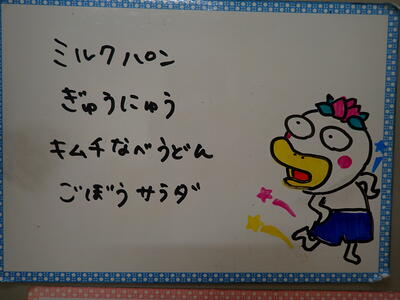 ミルクパン
ぎゅうにゅう
キムチなべうどん
ごぼうサラダ